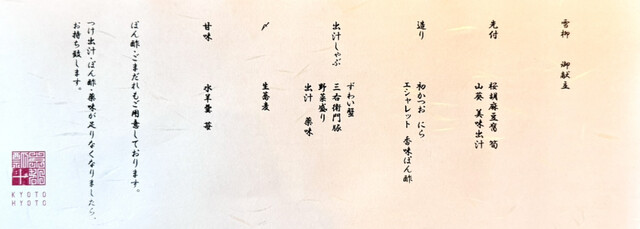 雪柳　御献立
先付　桜胡麻豆腐　筍
山葵　美味出汁
造り　初かつお　にら
エシャレット　香味ぽん酢
出汁しゃぶ　ずわい蟹
三右衛門豚
野菜盛り
出汁　薬味
〆　生蕎麦
甘味　水羊羹　苺
ぽん酢・ごまだれもご用意しております。
つけ出汁・ぽん酢・薬味が足りなくなりましたら、
お持ち致します。
KYOTO